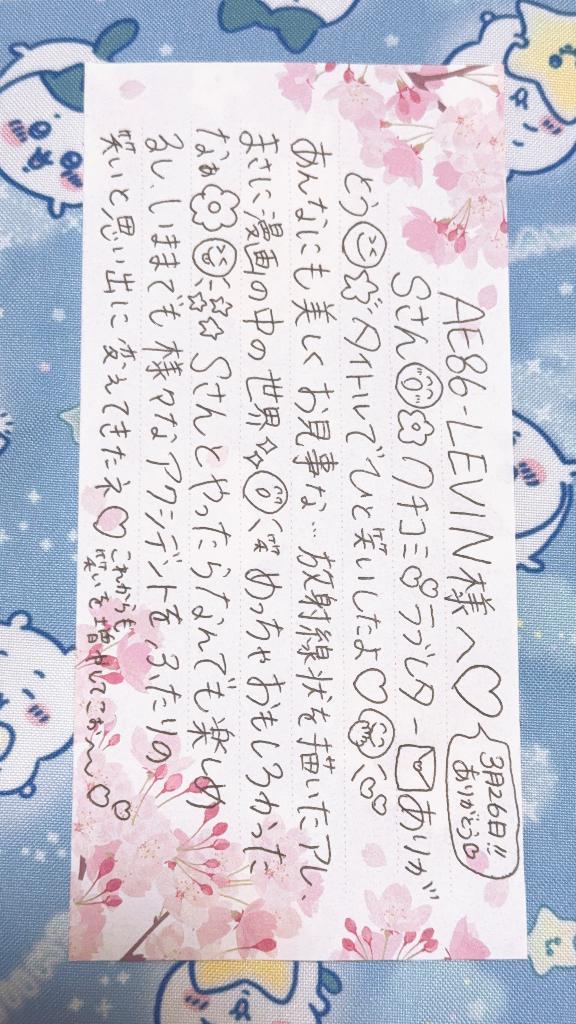 AE86-LEVIN様へ♡
3月26日!!
ありがとう♡
Sさん クチコミ♡ラブレターありが
とう タイトルでひと笑いしたよ♡
あんなにも美しくお見事な…放射線状を描いたアレ、
まさに漫画の中の世界 笑 めっちゃおもしろかった
なぁ Sさんとやったらなんでも楽しめ
るし、いままでも様々なアクシデントを、ふたりの
笑いと思い出に変えてきたネ♡
これからも
笑いを増やしてこぉ〜♡♡